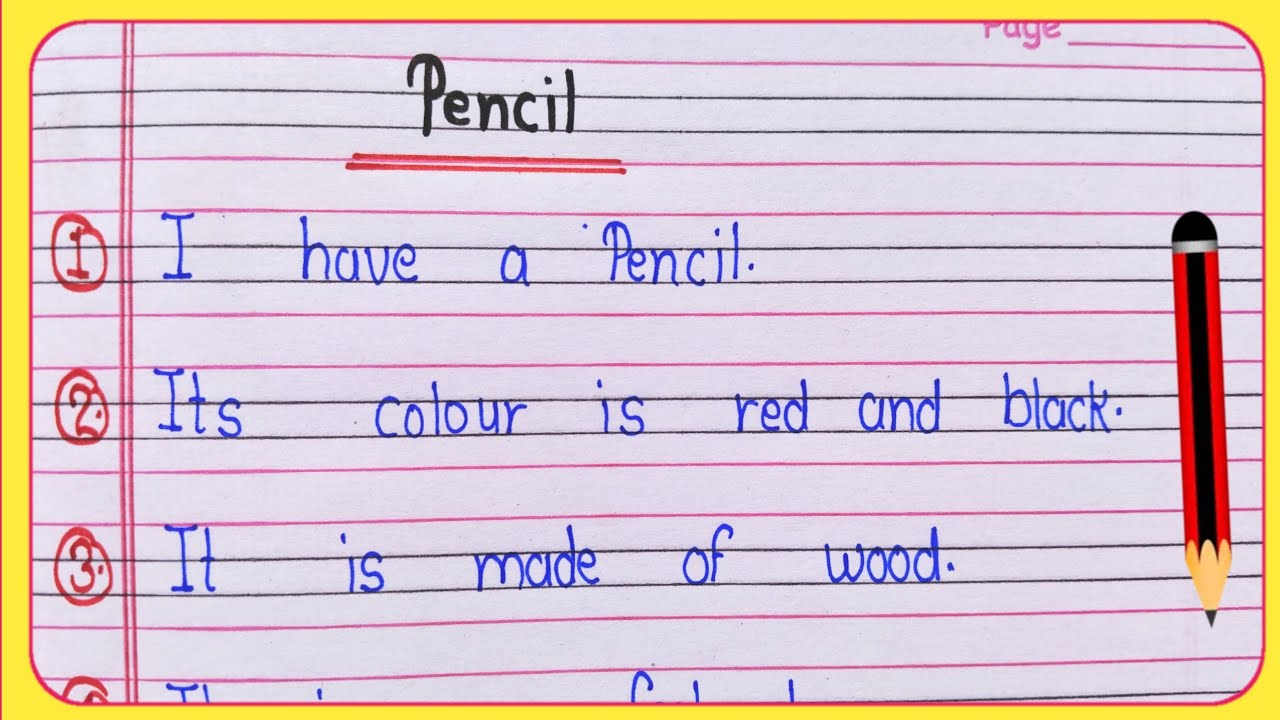 Page
Pencil
1 I have a Pencil.
2. Its colour is red and black.
3. It is made of wood.